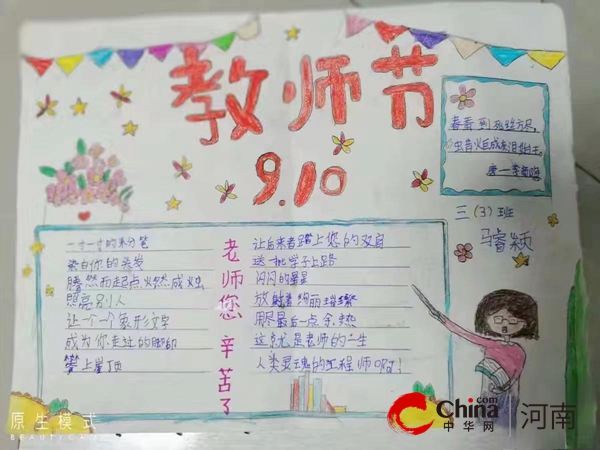 教师节
9.10
春蚕到死丝方尽,
唐一李商隐
三(3)班
马睿颖
一寸一寸的粉分笔
染白你的头发
腾然而起点火然成烛
照亮别人
让一个一个象形文字
成为你走过的脚印
攀上崖顶
老师您辛苦了
让后来者踏上您的双肩
送一批学子上路
闪闪的星星
放射着绚丽璀璨
用尽最后一点余热
这就是老师的一生
人类灵魂的工程师啊!
原生模式
BEAUTICAM
China.com
中华网
河南